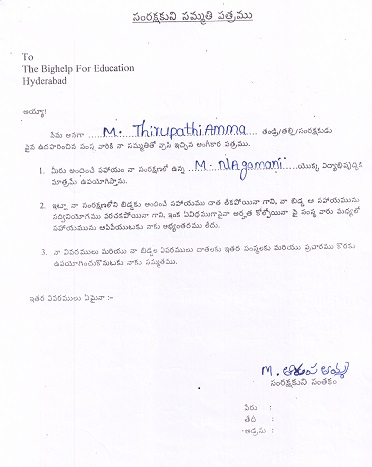 సంరక్షకుని సమ్మతి పత్రము
To
The Bighelp For Education
Hyderabad
అయ్యా!
నేను అనగా ...... M. Thirupathi Amma ...... తండ్రి/తల్లి/సంరక్షకుడు
పైన ఉదహరించిన సంస్థ వారికి నా సమ్మతితో వ్రాసి ఇచ్చిన అంగీకార పత్రము.
1. మీరు అందించే సహాయం నా సంరక్షణలో ఉన్న ...... M. NAgamani ...... యొక్క విద్యాభివృద్ధికి
మాత్రమే ఉపయోగిస్తాను.
2. ఇట్లా నా సంరక్షణలోని బిడ్డకు అందించే సహాయము చాత లేకపోయినా గాని, నా బిడ్డ ఆ సహాయమును
సద్వినియోగము పరచకపోయినా గాని, ఇంక ఏవిధముగానైనా అర్హత కోల్పోయినా పై సంస్థ వారు మధ్యలో
సహాయమును ఆపివేయుటకు నాకు అభ్యంతరము లేదు.
3. నా వివరములు మరియు నా బిడ్డల వివరములు దాతలకు ఇతర సంస్థలకు మరియు ప్రచారము కొరకు
ఉపయోగించుకొనుటకు నాకు సమ్మతము.
ఇతర వివరములు ఏమైనా :-
M.
సంరక్షకుని సంతకం
పేరు :
తేదీ :
అడ్రసు :